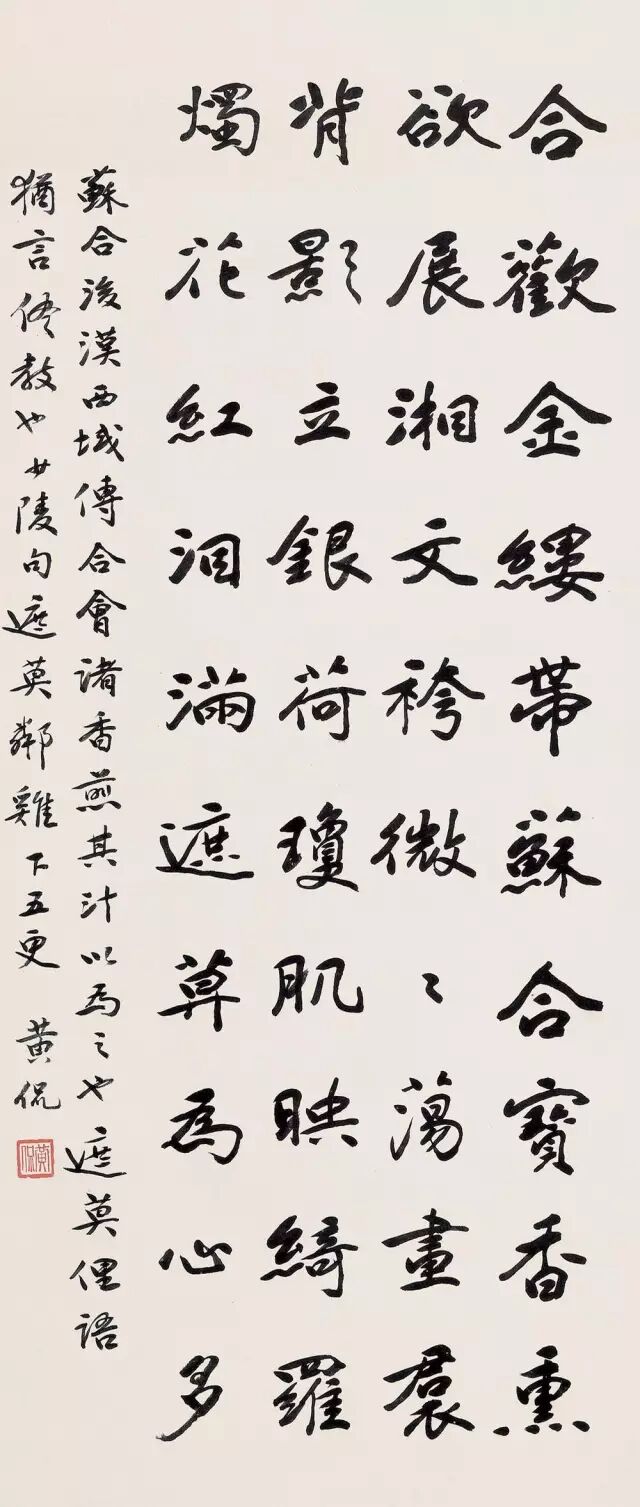 合歡金縷帶蘇合寶香熏
欲展湘文袴微〻蕩畫裠
背影立銀荷瓊肌映綺羅
燭花紅淚滿遮莫為心多
蘇合後漢西域傳合會諸香煎其汁以為之也遮莫俚語
猶言儘教也少陵句遮莫鄰雞下五更 黃侃
黃侃